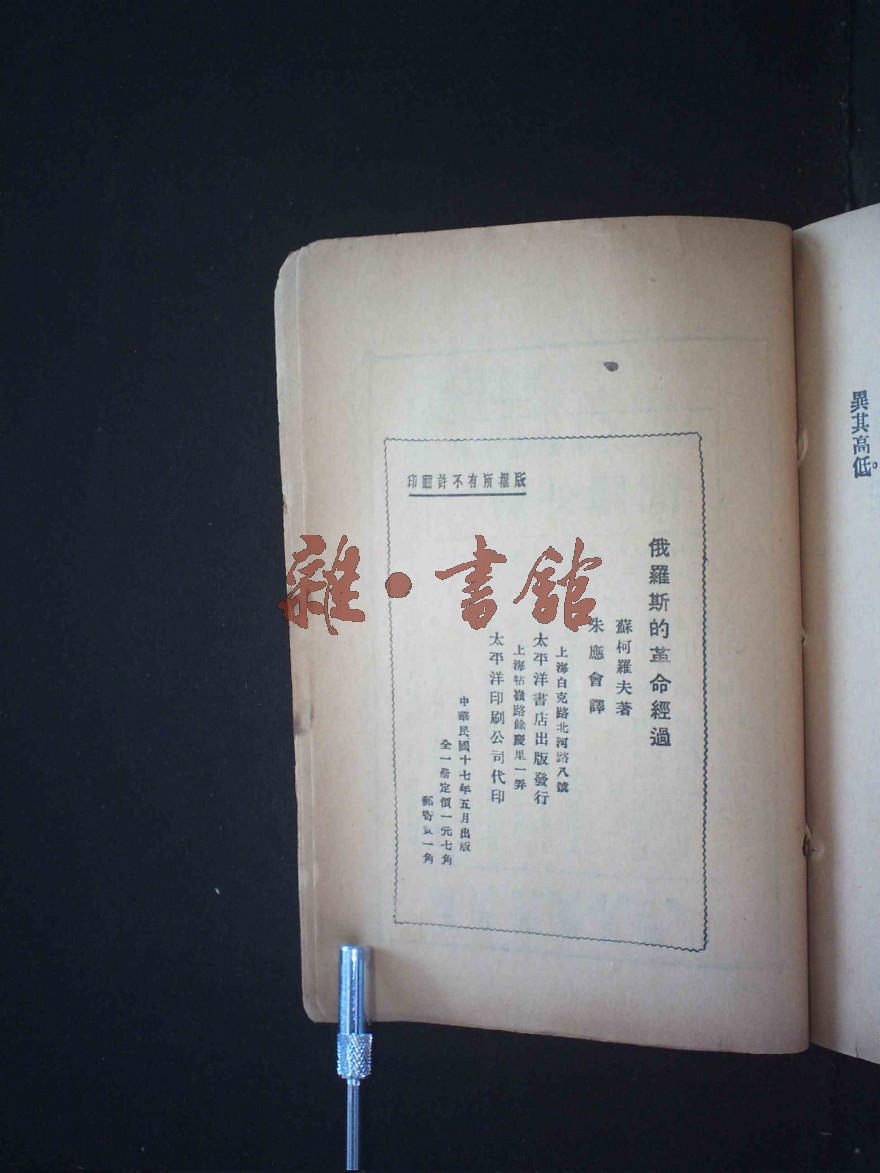 異其高低。
版權所有不許翻印
俄羅斯的革命經過
蘇柯羅夫著
朱應會譯
上海白克路北河路八號
太平洋書店出版發行
上海牯嶺路餘慶里一弄
太平洋印刷公司代印
中華民國十七年五月出版
全一册定價一元七角
郵寄費一角
雜·書館